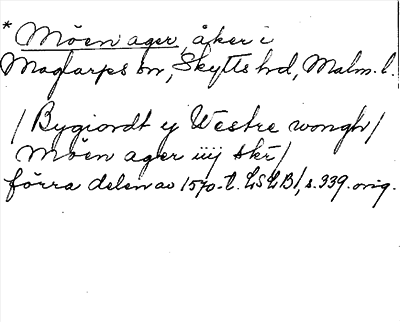 * Möen ager, åker i
Maglarps sn, Skytts hd, Malm. l.
/Bygiordt y Westre wongh/
Möen ager iiij skr/
förra delen av 1570-t. LSLB1, s. 339. orig.